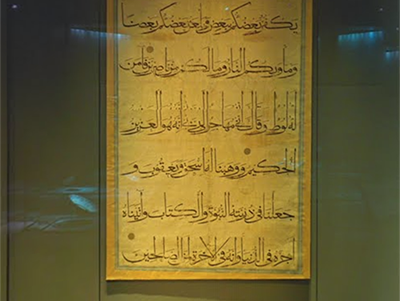 يكفر بعضكم ببعض ويلعن بعضكم بعضا
ومأويكم النار وما لكم من ناصرين فامن
له لوط وقال اني مهاجر الى ربي انه هو العزيز
الحكيم ووهبنا له اسحق ويعقوب و
جعلنا في ذريته النبوة والكتاب واتيناه
اجره في الدنيا وانه في الاخرة لمن الصالحين